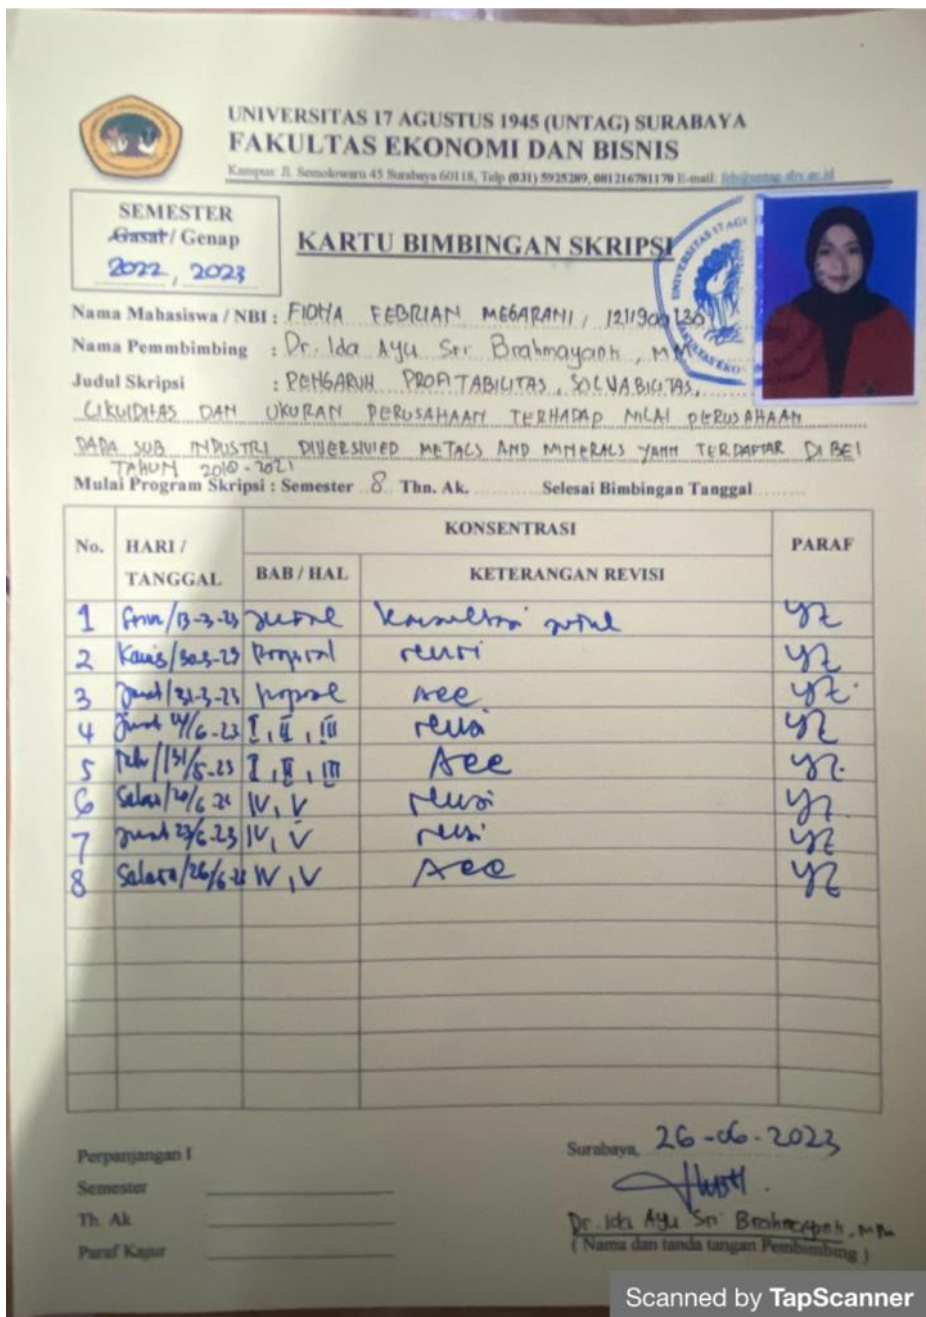 UNIVERSITAS 17 AGUSTUS 1945 (UNTAG) SURABAYA
FAKULTAS EKONOMI DAN BISNIS
Kampus: Jl. Semolowaru 45 Surabaya 60118, Telp (031) 5925289, 081216781170 E-mail: feb@untag-sby.ac.id
SEMESTER
Gasal / Genap
2022, 2023
KARTU BIMBINGAN SKRIPSI
Nama Mahasiswa / NBI : FIOHA FEBRIAN MEGARANI, 1211900230
Nama Pemmbimbing : Dr. Ida Ayu Sri Brahmayanti, MM
Judul Skripsi : PENGARUH PROFITABILITAS, SOLVABILITAS,
LIKUIDITAS DAN UKURAN PERUSAHAAN TERHADAP NILAI PERUSAHAAN
PADA SUB INDUSTRI DIVERSIVIED METALS AND MINERALS YANG TERDAFTAR DI BEI
TAHUN 2018-2021
Mulai Program Skripsi : Semester 8 Thn. Ak. Selesai Bimbingan Tanggal
No. HARI / TANGGAL KONSENTRASI PARAF
BAB / HAL KETERANGAN REVISI
1 /13-3-23
2 Kamis/30-3-23 Proposal revisi
3 Jumat/31-3-23 proposal Acc
4 I, II, III revisi
5 I, II, III Acc
6 Selasa/20/6-23 IV, V revisi
7 Jumat 23/6-23 IV, V revisi
8 Selasa/26/6-23 IV, V Acc
Surabaya, 26-06-2023
Perpanjangan I
Semester
Th. Ak
Paraf Kapur
Dr. Ida Ayu Sri Brahmayanti, MM
( Nama dan tanda tangan Pembimbing )
Scanned by TapScanner